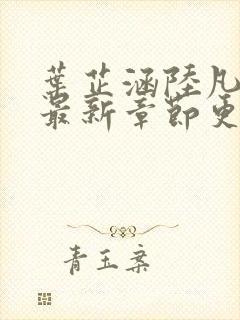 葉芷涵陸凡
最新章節更
青玉案